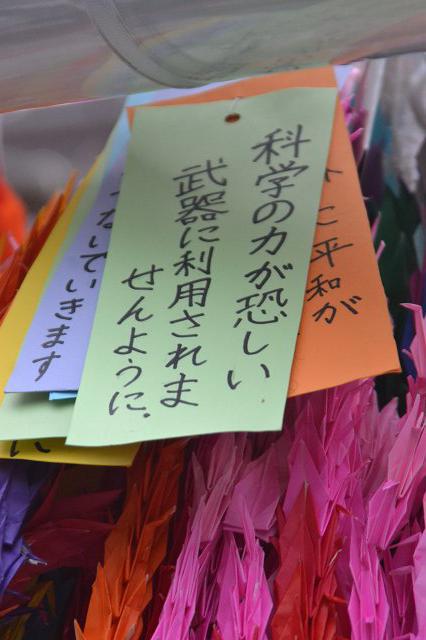 科学の力が恐しい
武器に利用されま
せんように.
に平和が
ないでいきます
い